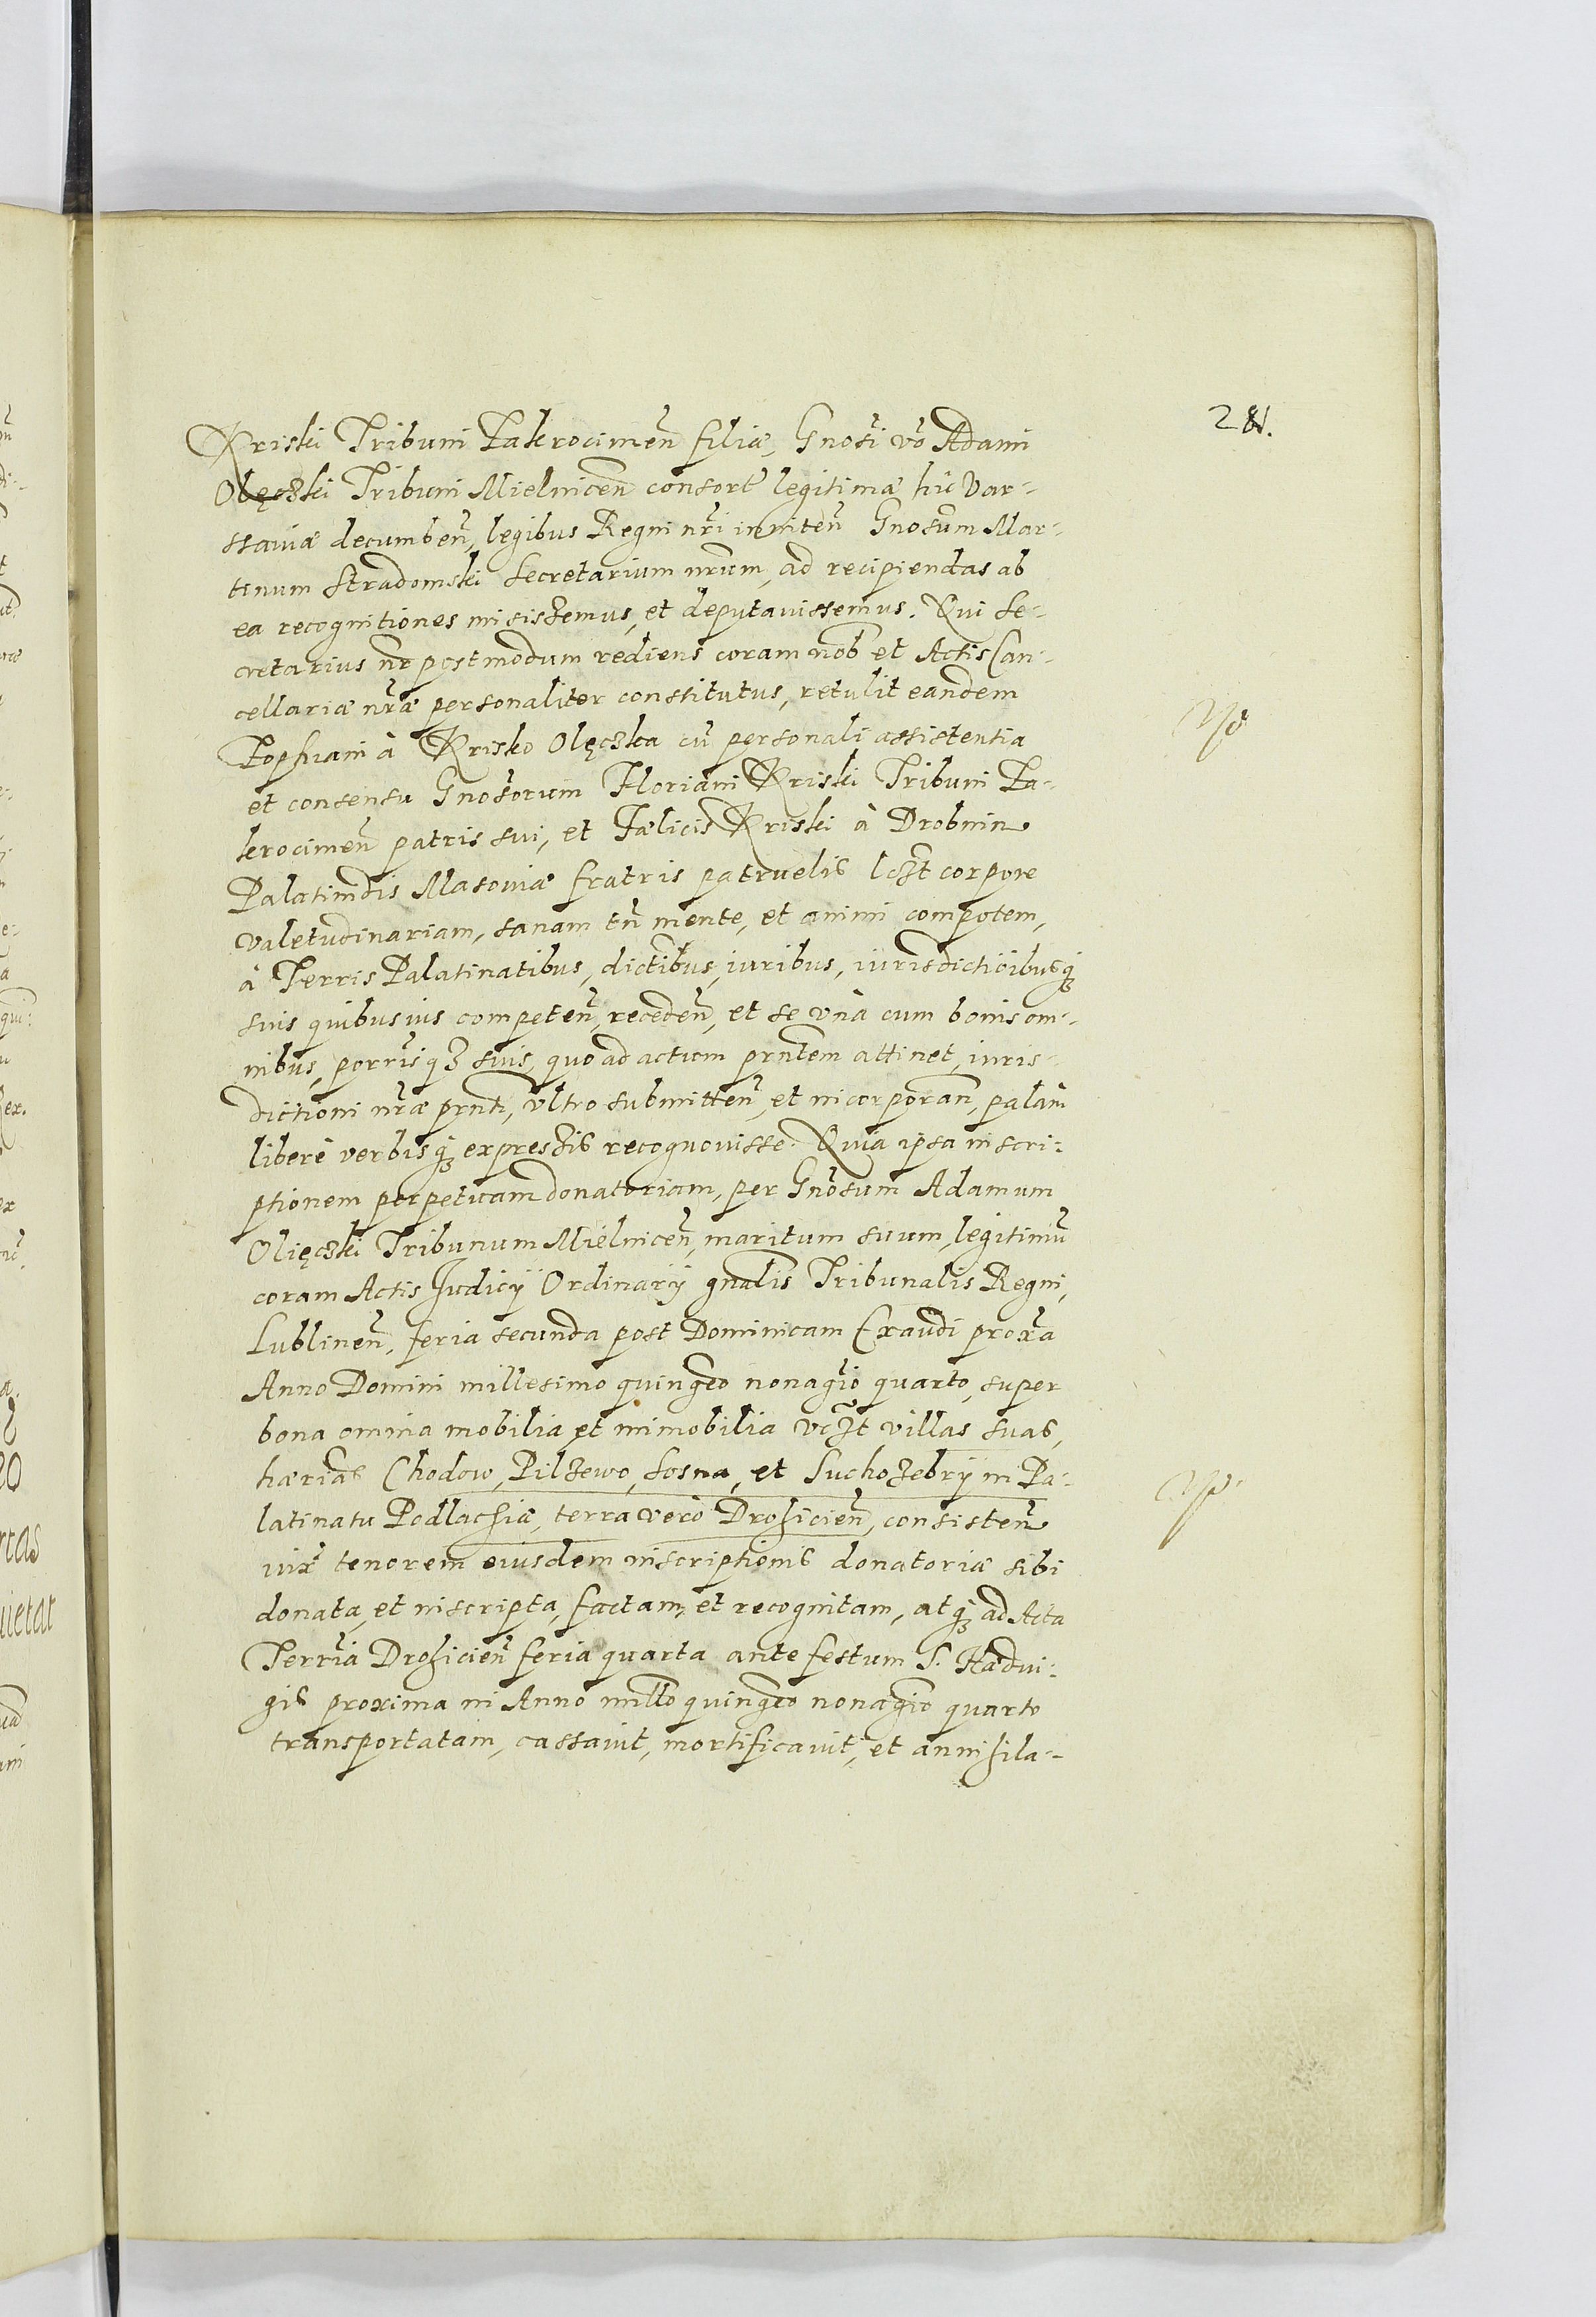 Kriski Tribuni Zakrocimeñ filiæ, Gnosi vo Adami
Olęczki Tribuni Mielnicen consorte legitima hic Var-
ssauiæ decumbeñ, legibus Regni nri inniteñ Gnosum Mar-
tinum Stradomski Secretarium nrum, ad recipiendas ab
ea recognitiones misissemus, et deputauissemus. Qui Se-
cretarius nr postmodum rediens coram nob et Actis Can-
cellariæ nræ personaliter constitutus, retulit eandem
Zophiam à Krisko Olęczka cu personali assistentia
et consensu Gnosorum Floriani Kriski Tribuni Za-
krocimeñ patris sui, et Fælicis Kriski à Drobnin
Palatinidis Masouiæ fratris patruelis lczt corpore
valetudinariam, sanam tn mente, et animi compotem,
à Terris Palatinatibus, dictibus, iuribus, iurisdictioibusq
suis quibusuis competeñ, recedeñ, et se vnà cum bonis om-
nibus, porrisq3 suis, quo ad actum prntem attinet, iuris-
dictioni nræ prnti, vltro submitteñ, et incorporañ, palàm
liberè verbisq expressis recognouisse. Quia ipsa inscri-
ptionem perpetuam donatoriam, per Gnosum Adamum
Olięczki Tribunum Mielniceñ, maritum suum, legitimu
coram Actis Judicij Ordinarij gnalis Tribunalis Regni,
Lublineñ, feria secunda post Dominicam Exaudi proxa
Anno Domini millesimo quingeo nonagio quarto, super
bona omnia mobilia et immobilia vczt villas suas,
hærias Chodow, Pilzewo, Sosna, et Suchozebry in Pa-
latinatu Podlachiæ, terra verò Drohicieñ, consisteñ
iux tenorem eiusdem inscriptionis donatoriæ sibi
donata, et inscripta, factam, et recognitam, atq ad Acta
Terria Drohicieñ feria quarta ante festum S. Hædui-
gis proxima in Anno millo quingeo nonagio quarto
transportatam, cassauit, mortificauit, et annihila-